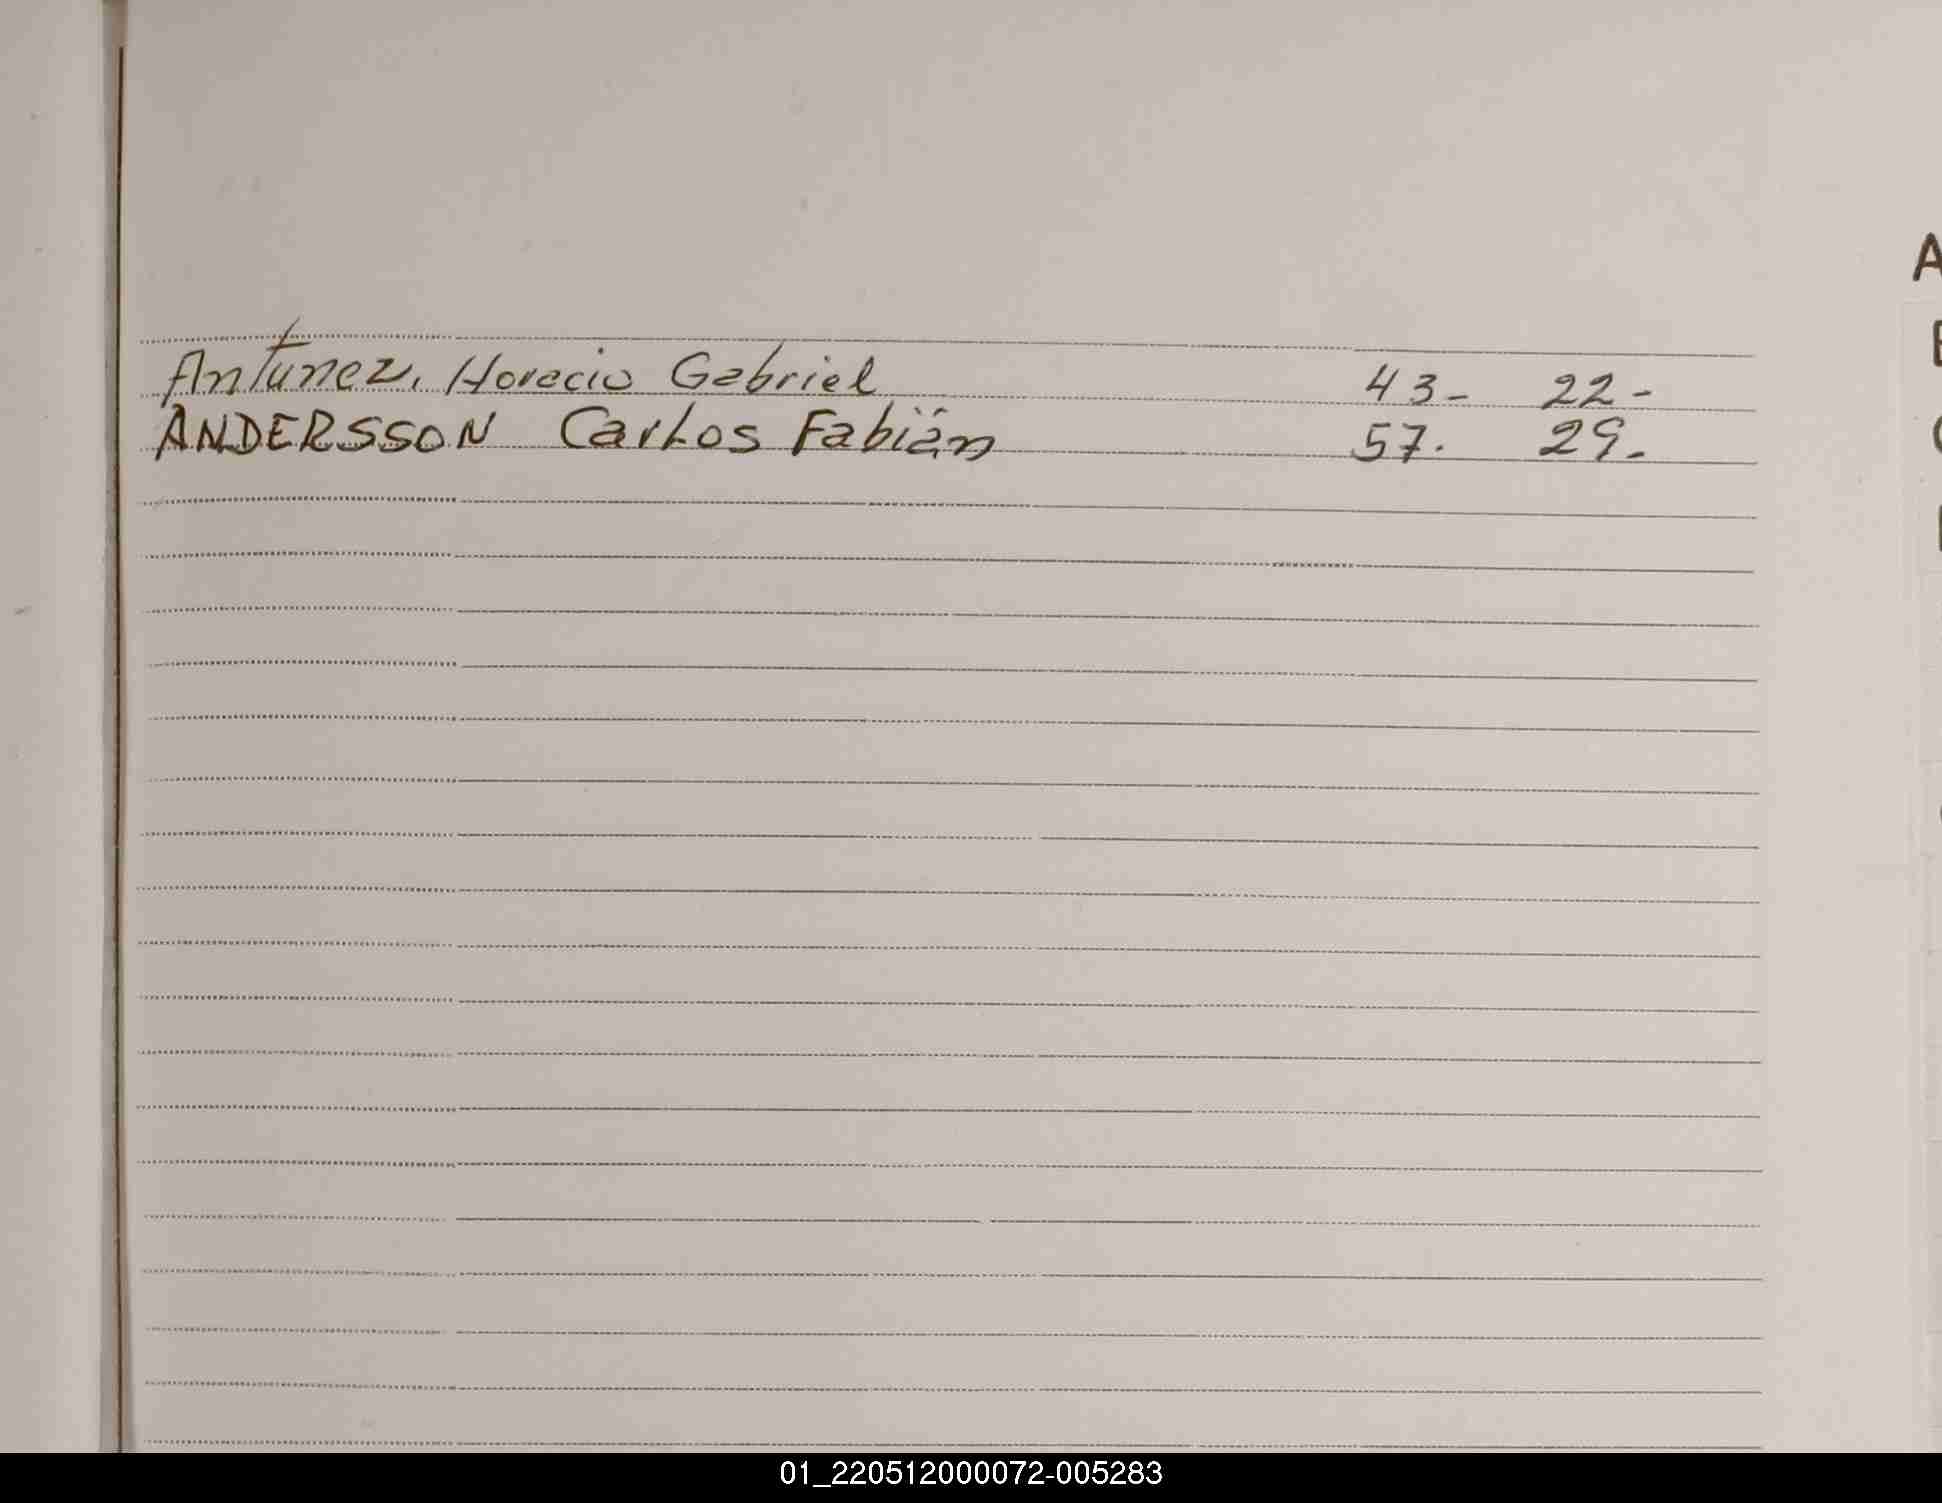 Antunez, Horacio Gabriel 43- 22-
ANDERSSON Carlos Fabián 57. 29-
A
01_220512000072-005283